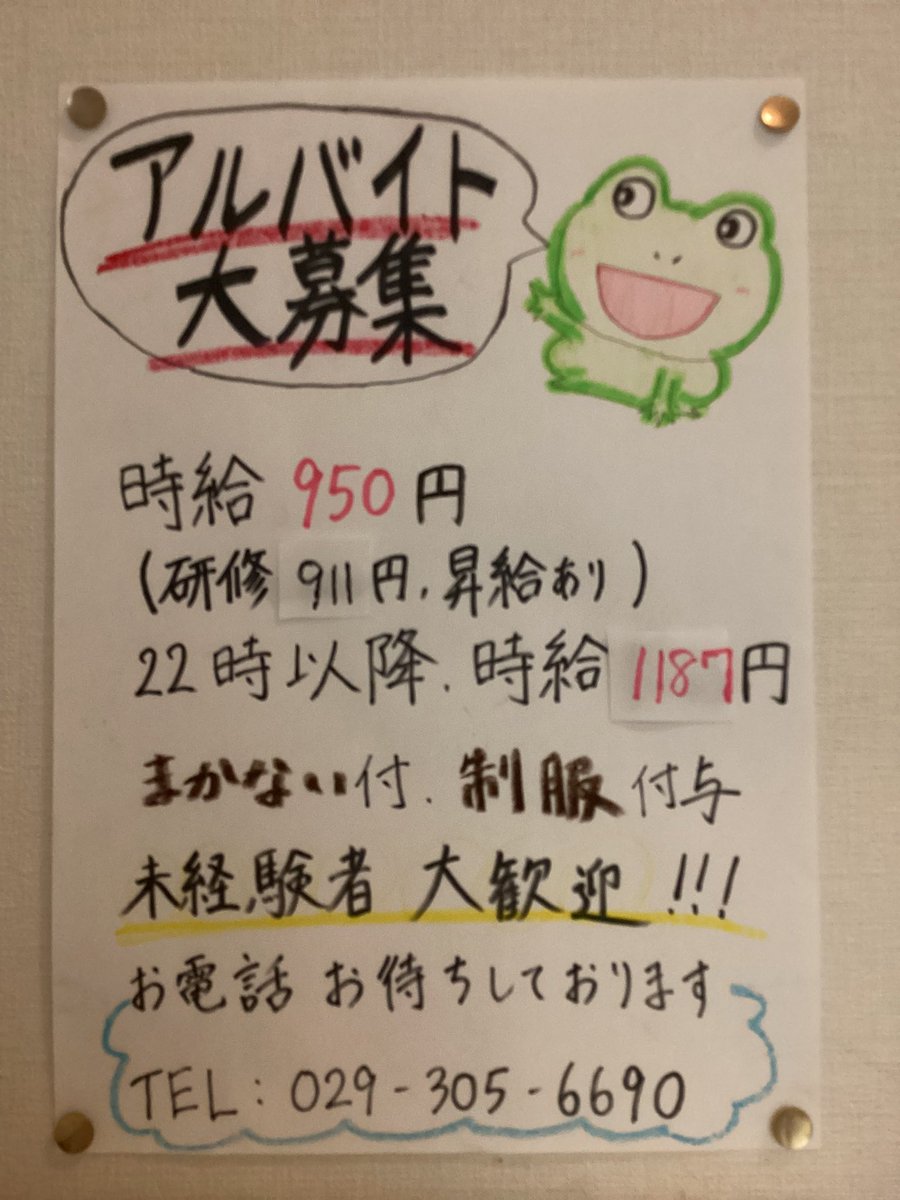 アルバイト
大募集
時給 950円
(研修 911円, 昇給あり)
22時以降. 時給 1187円
まかない付. 制服付与
未経験者 大歓迎!!!
お電話 お待ちしております
TEL: 029-305-6690